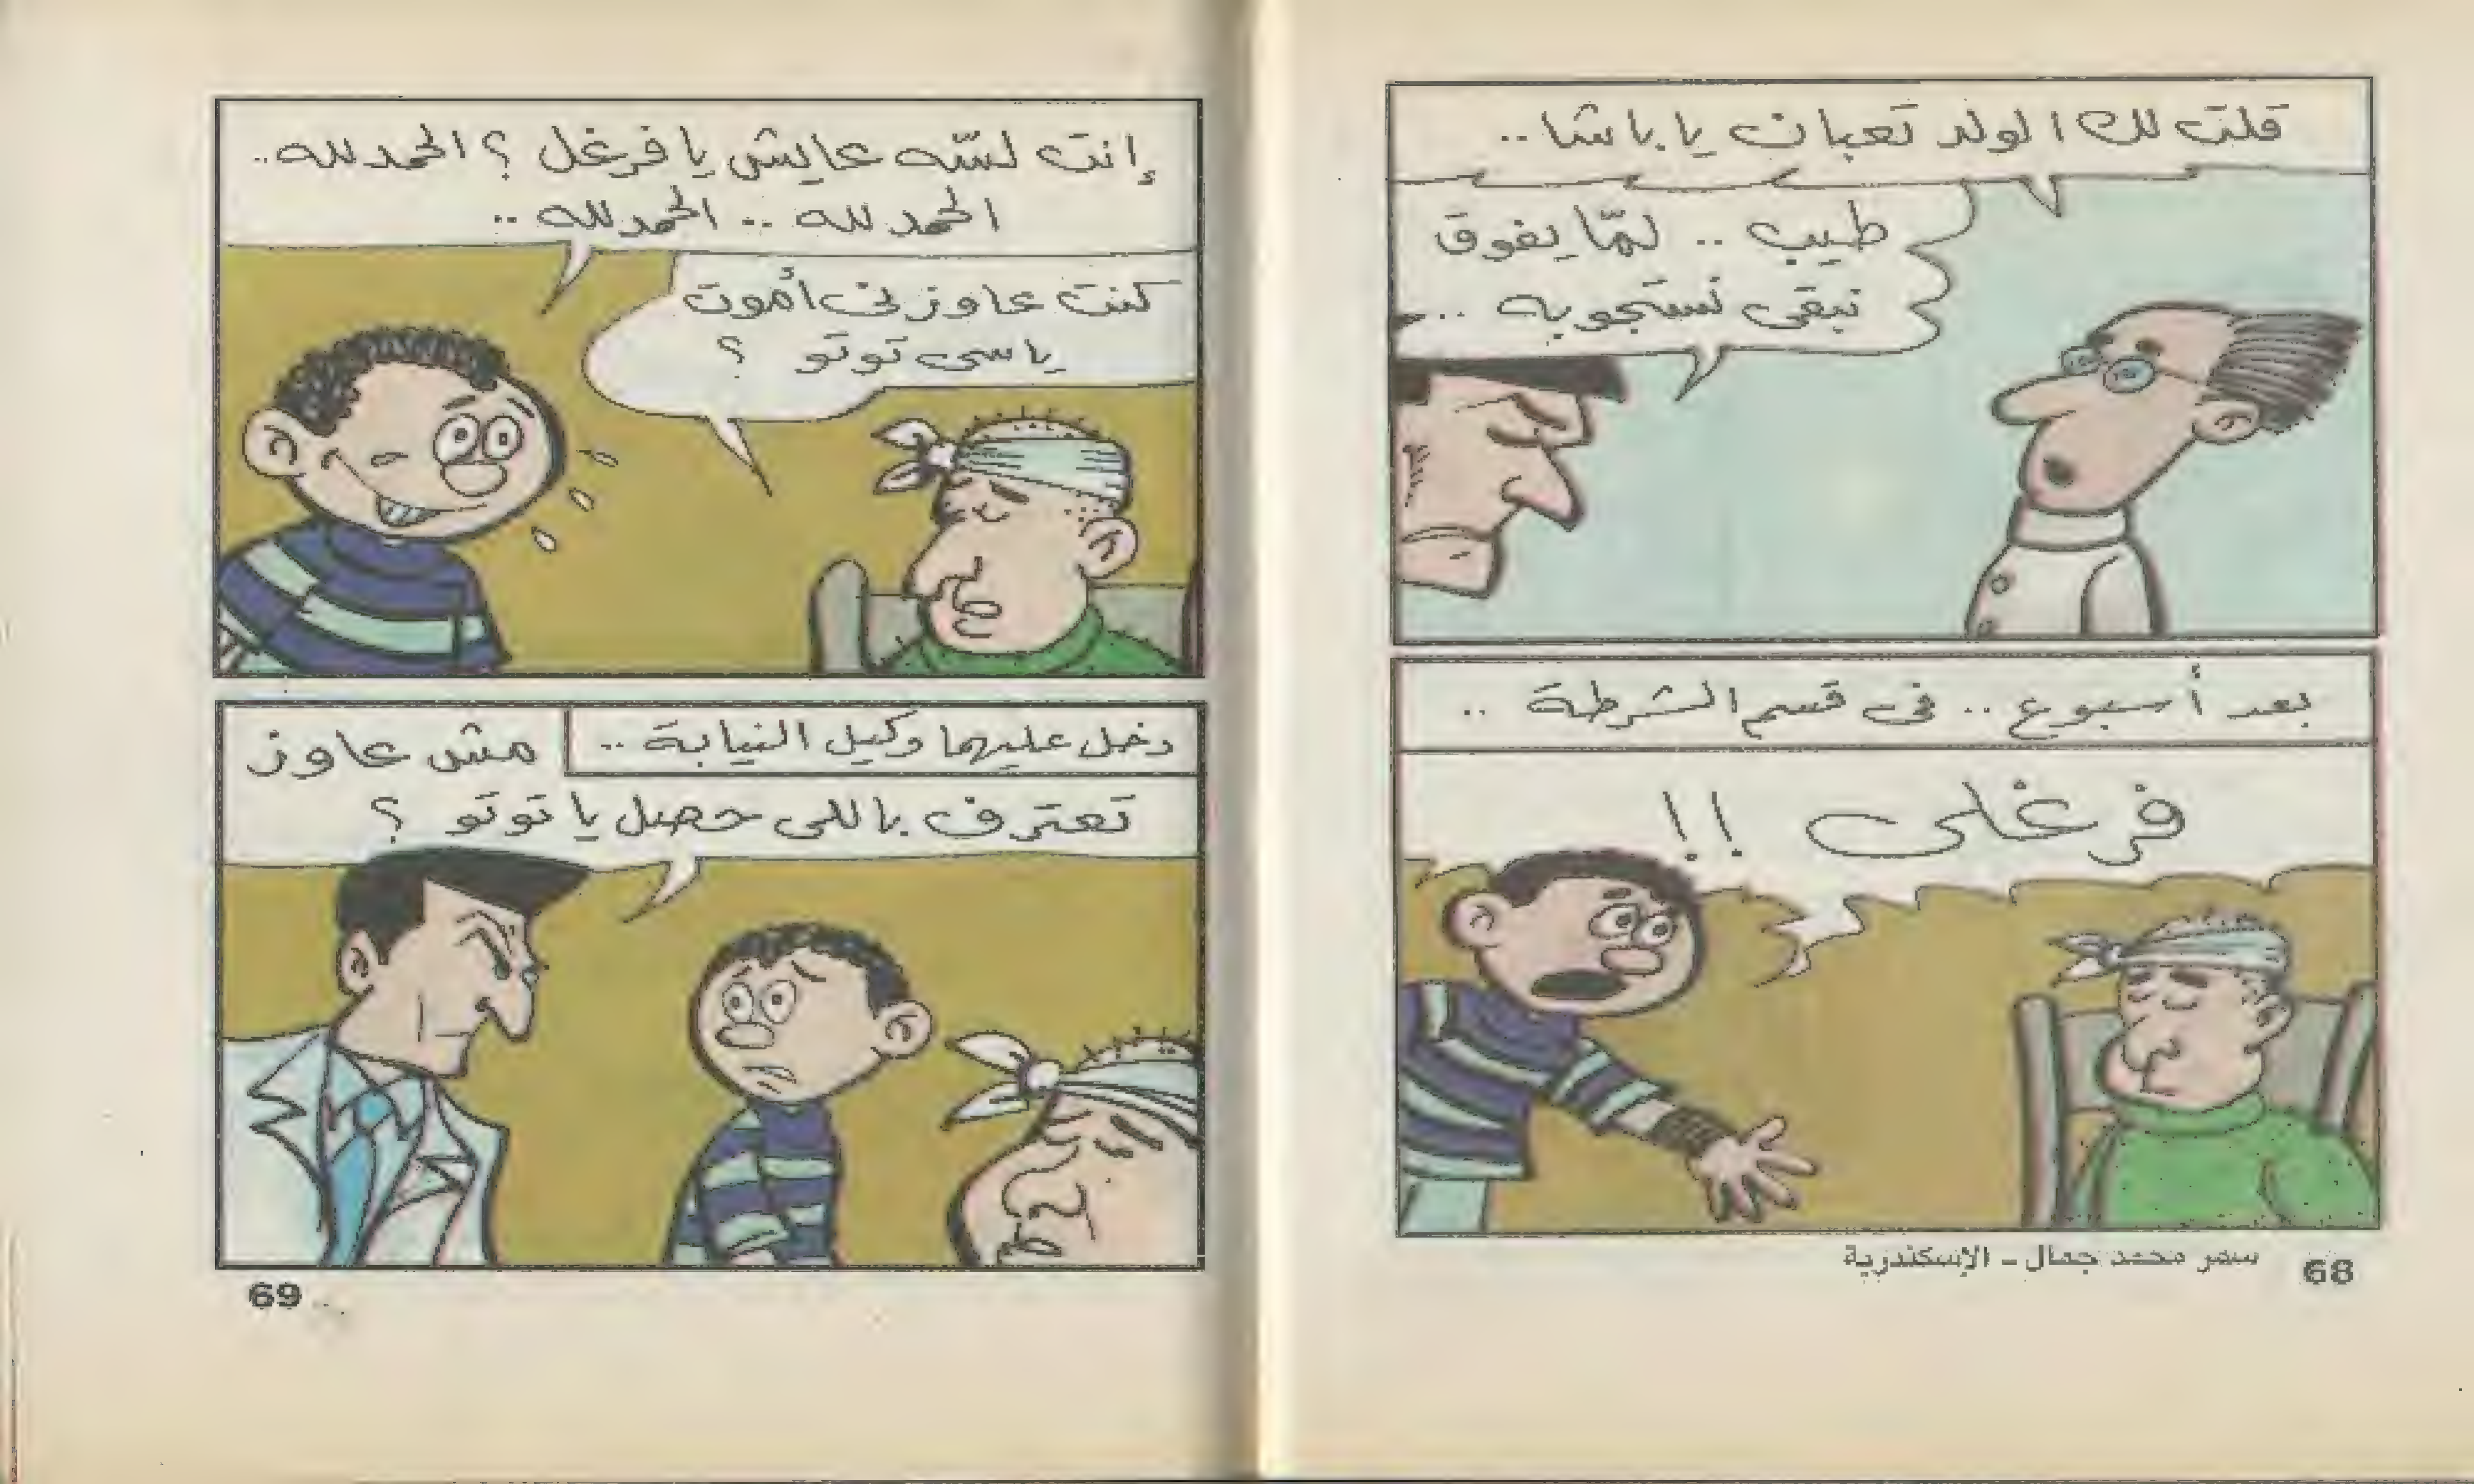 قلت لك الولد تعبان يا باشا..
طيب .. لمّا يفوق
نبقى نستجوبه ..
بعد أسبوع .. فى قسم الشرطة ..
فرغلى !!
سمر محمد جمال - الإسكندرية
68
إنت لسّه عايش يا فرغل ؟ الحمد لله..
الحمد لله .. الحمد لله ..
كنت عاوزنى أموت
يا سى توتو ؟
دخل عليهما وكيل النيابة ..
مش عاوز
تعترف باللى حصل يا توتو ؟
69